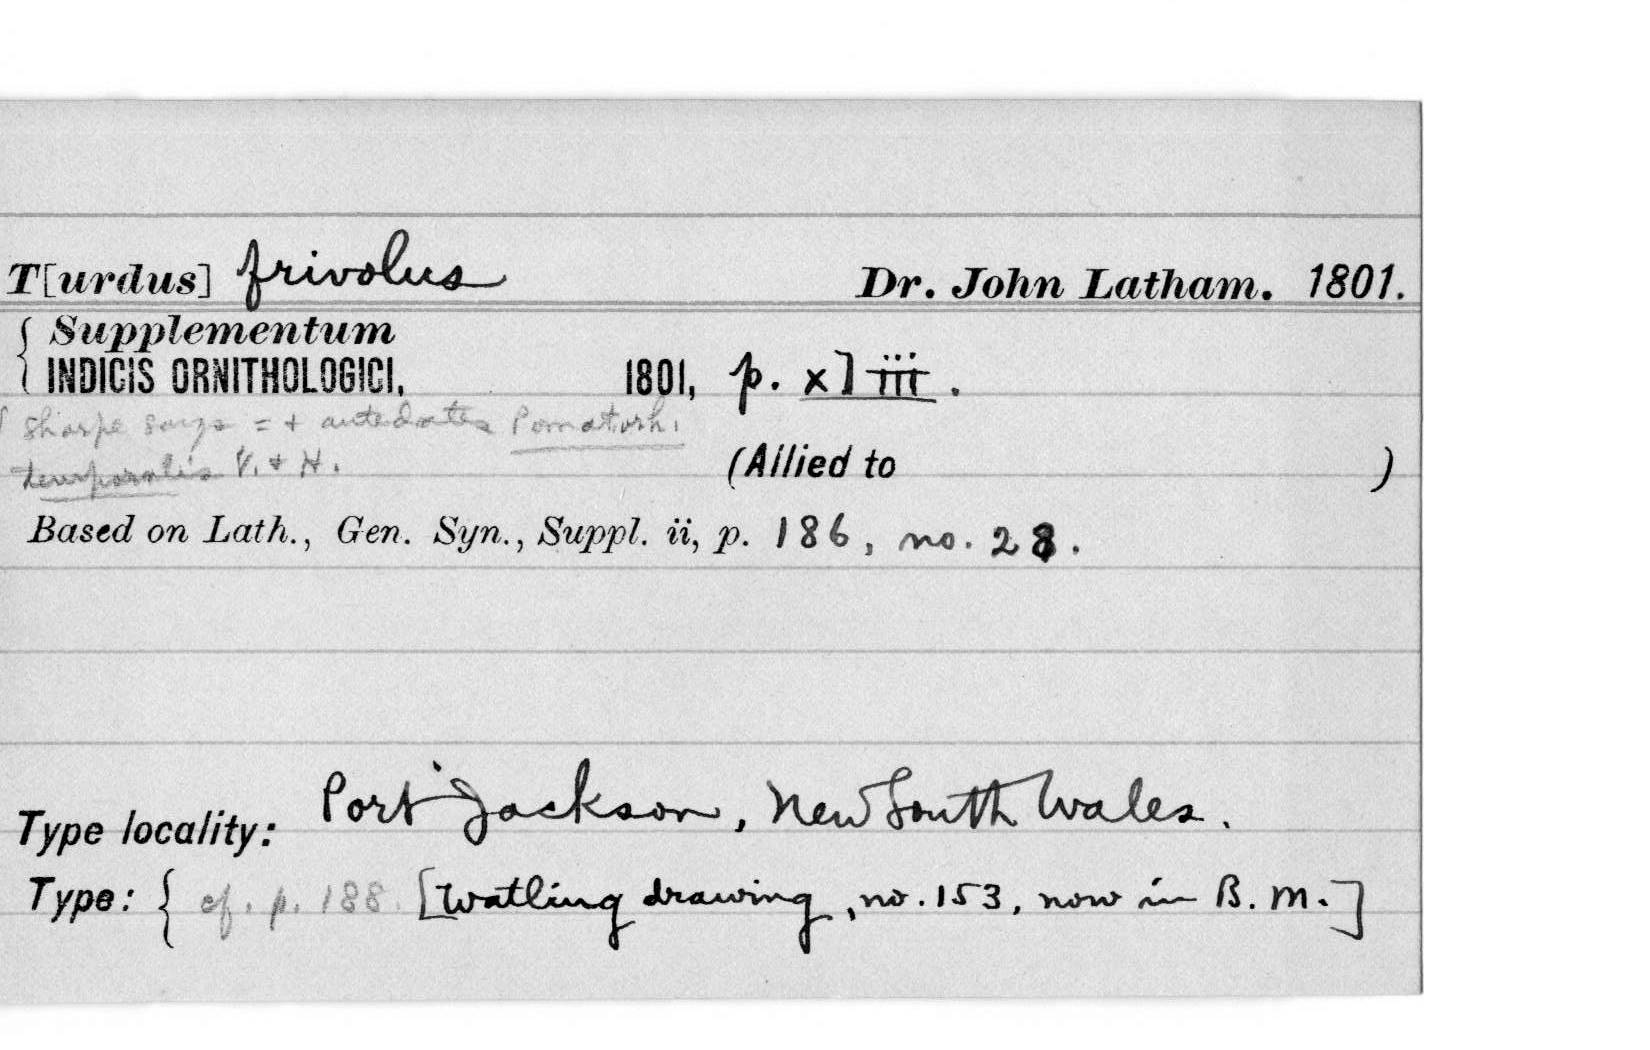 T[urdus] frivolus Dr. John Latham. 1801.
{ Supplementum
INDICIS ORNITHOLOGICI, 1801, p. xliii.
Sharpe says = + antedates Pomatorh.
temporalis V. + H. (Allied to )
Based on Lath., Gen. Syn., Suppl. ii, p. 186, no. 28.
Type locality: Port Jackson, New South Wales.
Type: { cf. p. 188. [Watling drawing, no. 153, now in B. M.]